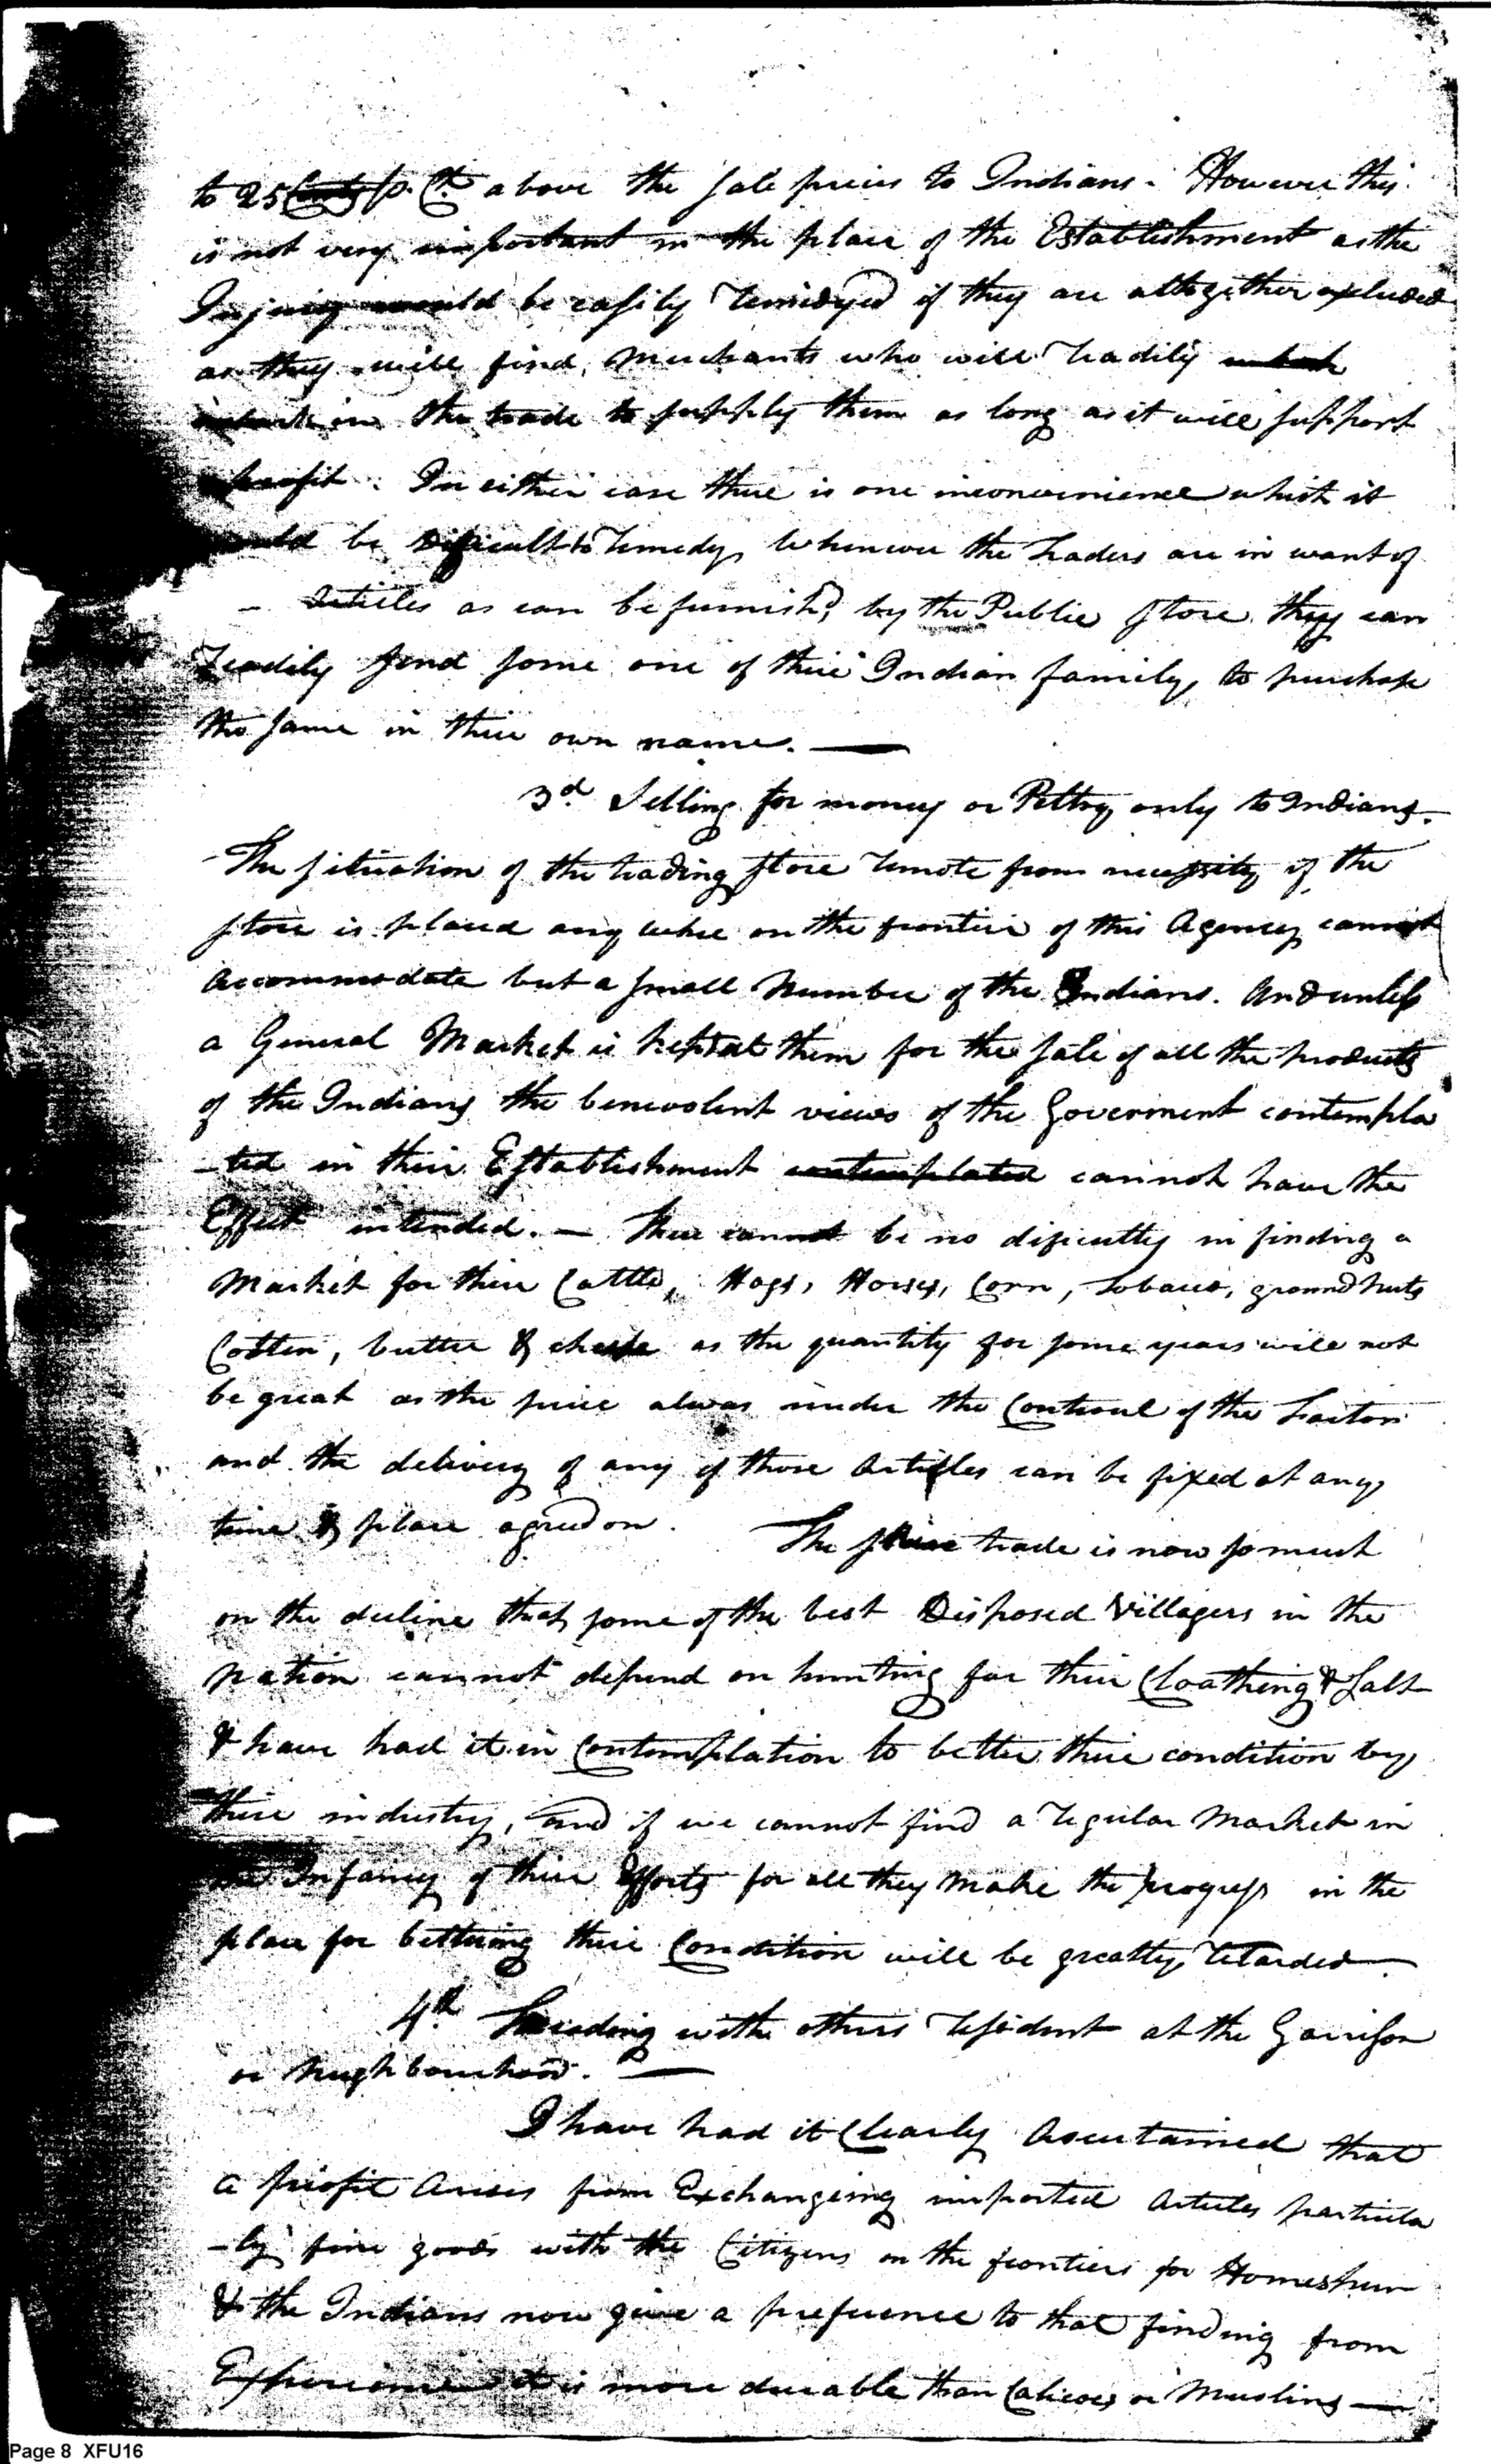 to 25 Cents p. Ct. above the sale prices to Indians. However this
is not very important in the place of the Establishment as the
Injury would be easily remidyed if they are altogether excluded
as they will find, Merchants who will readily
in the trade to supply them as long as it will support
profit. In either case there is one inconvenience which it
be difficult to remedy, Whenever the traders are in want of
- Articles as can be furnishd, by the Public store they can
readily find some one of their Indian family, to purchase
the same in their own name. —
3d. Selling for money or Peltry only to Indians.
The situation of the trading store remote from necessity if the
store is placed any where on the frontier of this Agency cannot
accommodate but a small Number of the Indians. And unless
a General Market is kept at them for the sale of all the products
of the Indians the benevolent views of the Goverment contempla
-ted in their Establishment contemplated cannot have the
Effect intended. — There cannot be no dificulty in finding a
Market for their Cattle, Hogs, Horses, Corn, tobacco, ground nuts
Cotten, butter & cheese as the quantity for some years will not
be great as the price alwas under the Controul of the factor
and the delivery of any of those Articles can be fixed at any
time & place agreed on. The trade is now so much
on the decline that some of the best Disposed Villagers in the
nation cannot depend on hunting for their Cloathing & Salt
& have had it in Contemplation to better their condition by
their industry, and if we cannot find a regular Market in
the Infancy of their Efforts for all they Make the progress in the
place for bettering their Condition will be greatly, retarded.
4th Trading with others resident at the Garrison
or neighbourhood. —
I have had it Clearly Ascertained that
a profit Arises from Exchangeing imported Articles particula
-ly fine goods with the Citizens on the frontiers for Homespun
& the Indians now give a preference to that finding from
Experience it is more durable than Calicoes or Muslins —
Page 8 XFU16